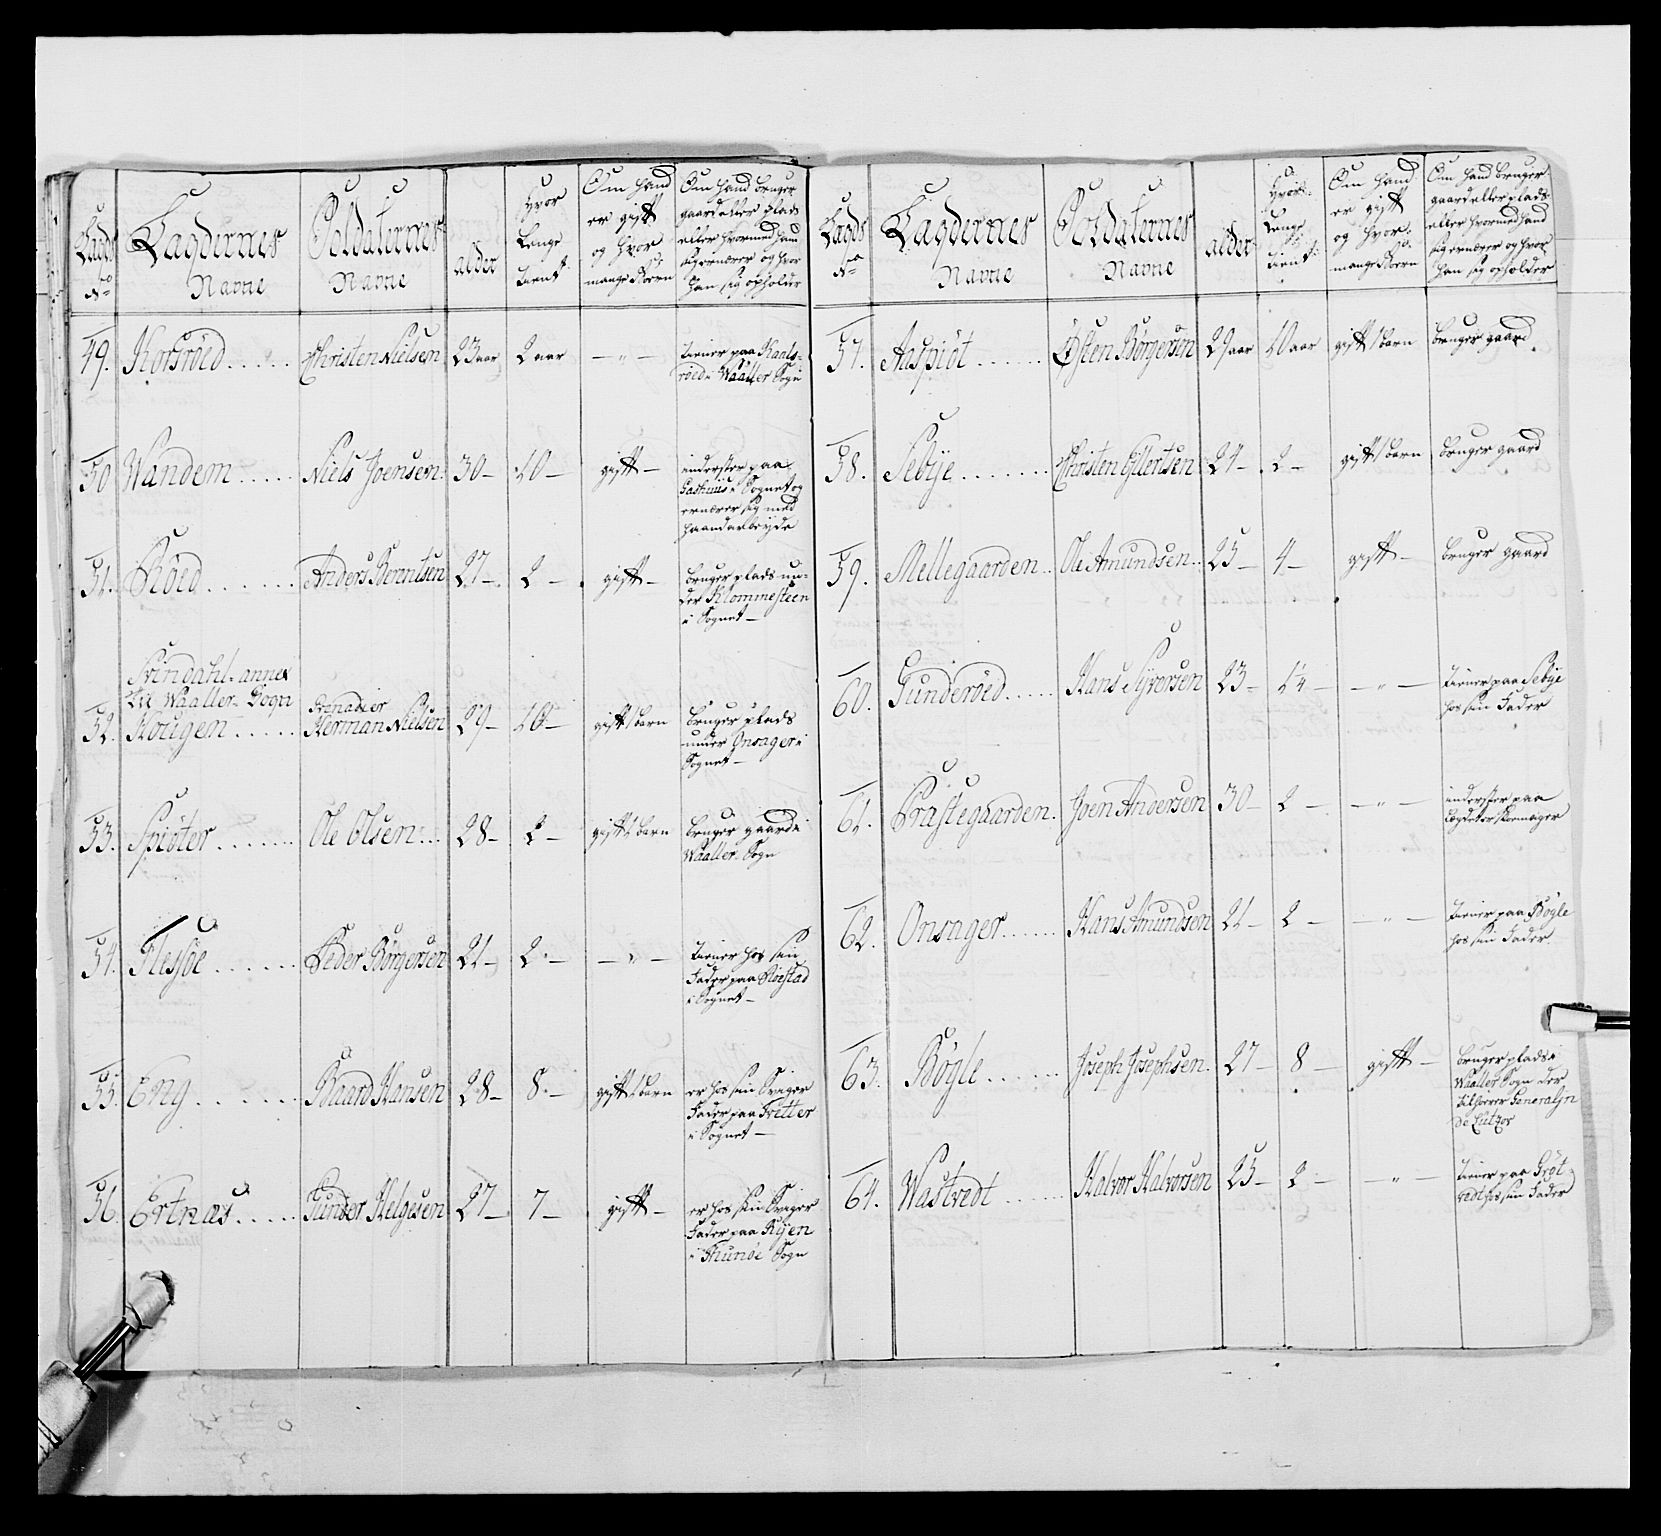 Lægds No
Lægdernes Navne
Soldaternes Navne
alder
Hvor Lenge tient
Om hand er gift og hvor mange Børn
Om hand bruger gaard eller plads eller hvormed hand sig ernærer og hvor han sig opholder
49. Korsröed Christen Nielsen 23 aar 2 aar — " — tiener paa
röed i Waaller Sogn
50 Wandem Niels Joensen 30 — 10 — gift — inderster paa
i Sognet og
ernærer sig med
haandarbeyde
51. Röed Anders Berentsen 27 — 2 — gift — bruger plads un-
der Klommesteen
i Sognet —
Svindahl annex
til Waaller Sogn
Grenadier
52. Hougen Herman Nielsen 29 — 10 — gift 1 barn bruger plads
under Onsager i
Sognet —
53. Spiöter Ole Olsen 28 — 2 — gift 1 barn bruger gaard i
Waaller Sogn
54. Flesöe Peder Börgersen 21 — 2 — — " — tiener hos sin
Fader paa Röestad
i Sognet —
55. Eng Baard Hansen 28 — 8 — gift 1 barn er hos sin Sviger
Fader paa Tvetter
i Sognet —
56. Ertnæs Gunder Helgesen 27 — 7 — gift — er hos sin Sviger
Fader paa Ryen
i Thunöe Sogn
Lægds No
Lægdernes Navne
Soldaternes Navne
alder
Hvor Lenge tient
Om hand er gift og hvor mange Börn
Om hand bruger gaard eller plads eller hvormed hand sig ernærer og hvor han sig opholder
57. Aaspiöt Östen Börgersen 29 aar 10 aar gift 1 barn bruger gaard
58. Sebye Christen Eilertsen 24 — 2 — gift 1 barn bruger gaard
59. Mellegaarden Ole Amundsen 25 — 4 — gift — bruger gaard
60. Gunderöed Hans Syversen 23 — 1/4 — — " — tiener paa Sebye
hos sin Fader
61. Præstegaarden Joen Andersen 30 — 2 — — " — inderster paa
Lægdet er skomager
62. Onsager Hans Amundsen 21 — 2 — — " — tiener paa Bögle
hos sin Fader
63. Bögle Joseph Josephsen 27 — 8 — gift — bruger plads i
Waaller Sogn der
tilhörer Generalin
de Lützov
64. Wastvedt Halvor Halvorsen 25 — 2 — — " — tiener paa Gröt-
vedt hos sin Fader